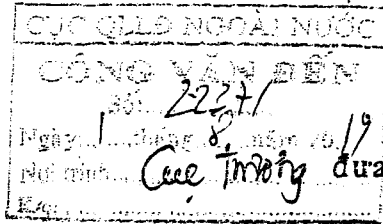 CỤC QLLĐ NGOÀI NƯỚC
CÔNG VĂN ĐẾN
Số:
Ngày 1 tháng 8 năm 20 19
Nơi trình Cục Trưởng đưa